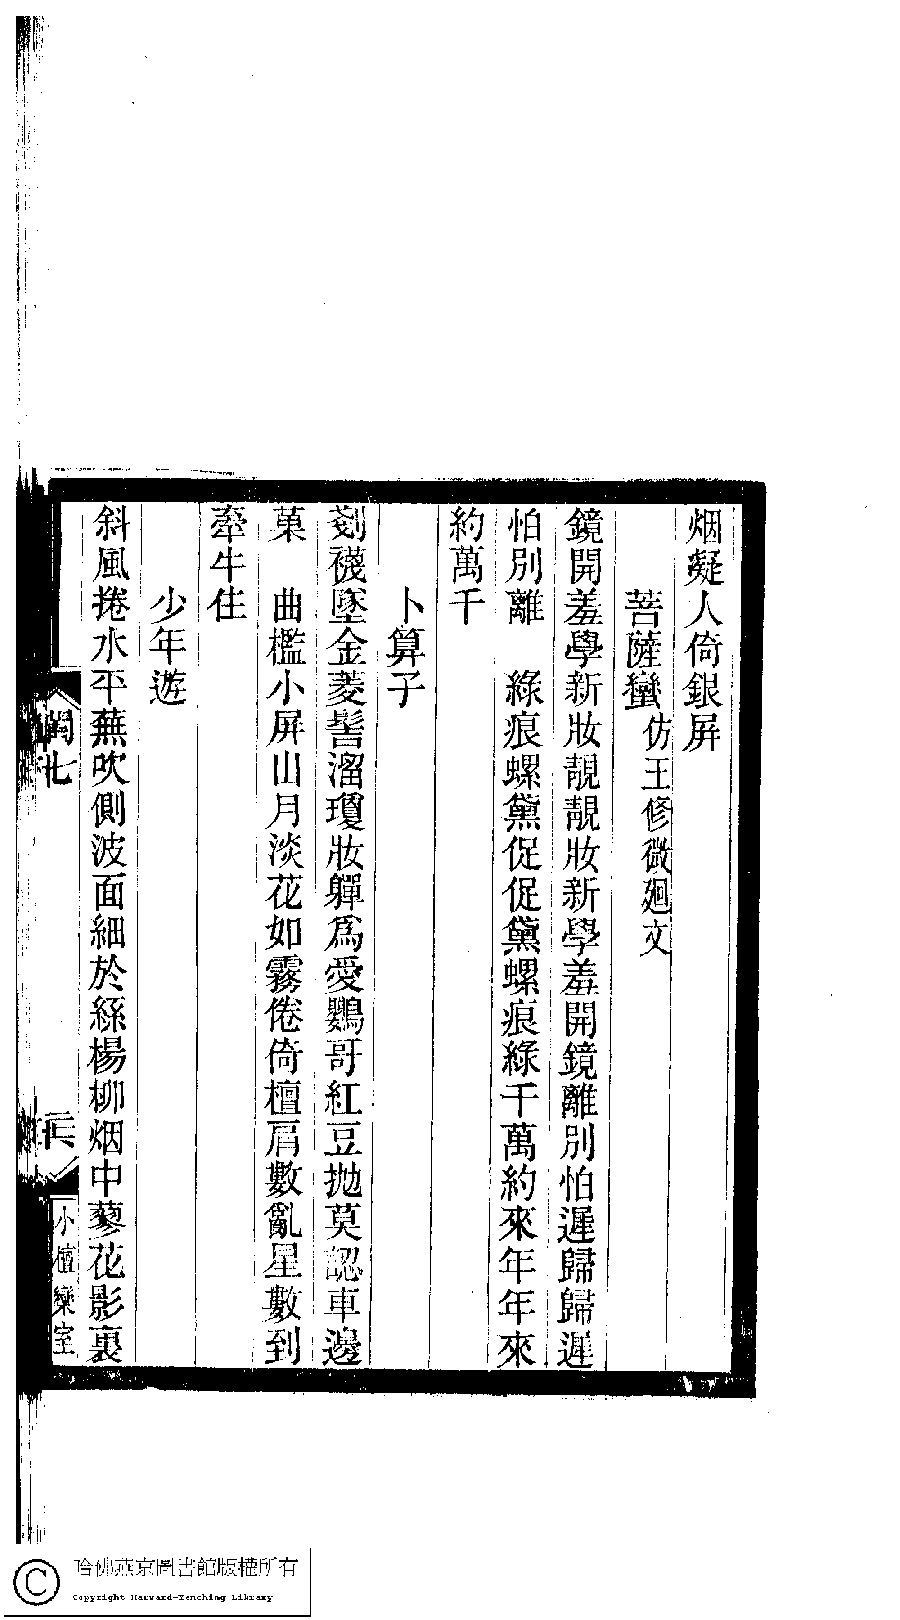 烟凝人倚銀屏
菩薩蠻仿王修微廻文
鏡開羞學新妝靚靚妝新學羞開鏡離別怕遲歸歸遲
怕別離　綠痕螺黛促促黛螺痕綠千萬約來年年來
約萬千
卜算子
剗襪墜金菱髻溜瓊妝嚲爲愛鸚哥紅豆抛莫認車邊
菓　曲檻小屏山月淡花如霧倦倚檀屑數亂星數到
牽牛住
少年遊
斜風捲水平蕪吹側波面細於絲楊柳烟中蓼花影裏
小檀欒室
哈佛燕京圖書館版權所有
Copyright Harvard-Yenching Library